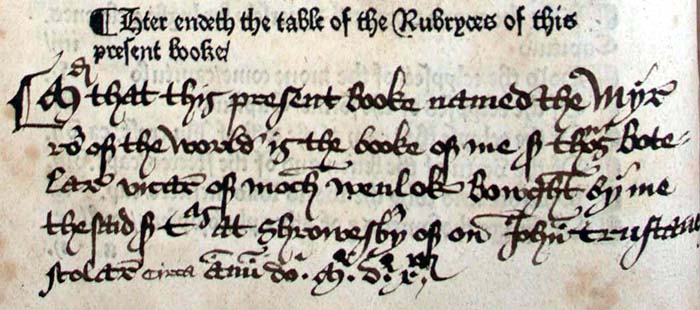 ¶ Hier endeth the table of the Rubryces of this
present booke/
that this present booke named the Myr
of the World is the booke of me sr Thos bote-
lar vicar of moch wenlok bowght by me
the said sr at Shrowesby of on John Trustan
scolar circa